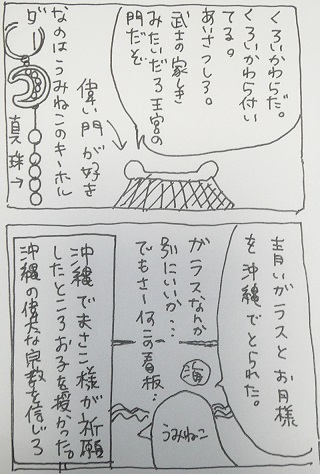 くろいかわらだ。
くろいかわら付い
てる。
あいさつしろ。
武士の家しき
みたいだろ王宮の
門だぞ
偉い門が好き
なのはうみねこのキーホル
ダー
真珠→
青いガラスとお月様
を沖縄でとられた。
ガラスなんか
別にいいが…
でもさー何この看板…
海
うみねこ
沖縄でまさこ様が祈願
したところお子を授かった。
沖縄の偉大な宗教を信じろ